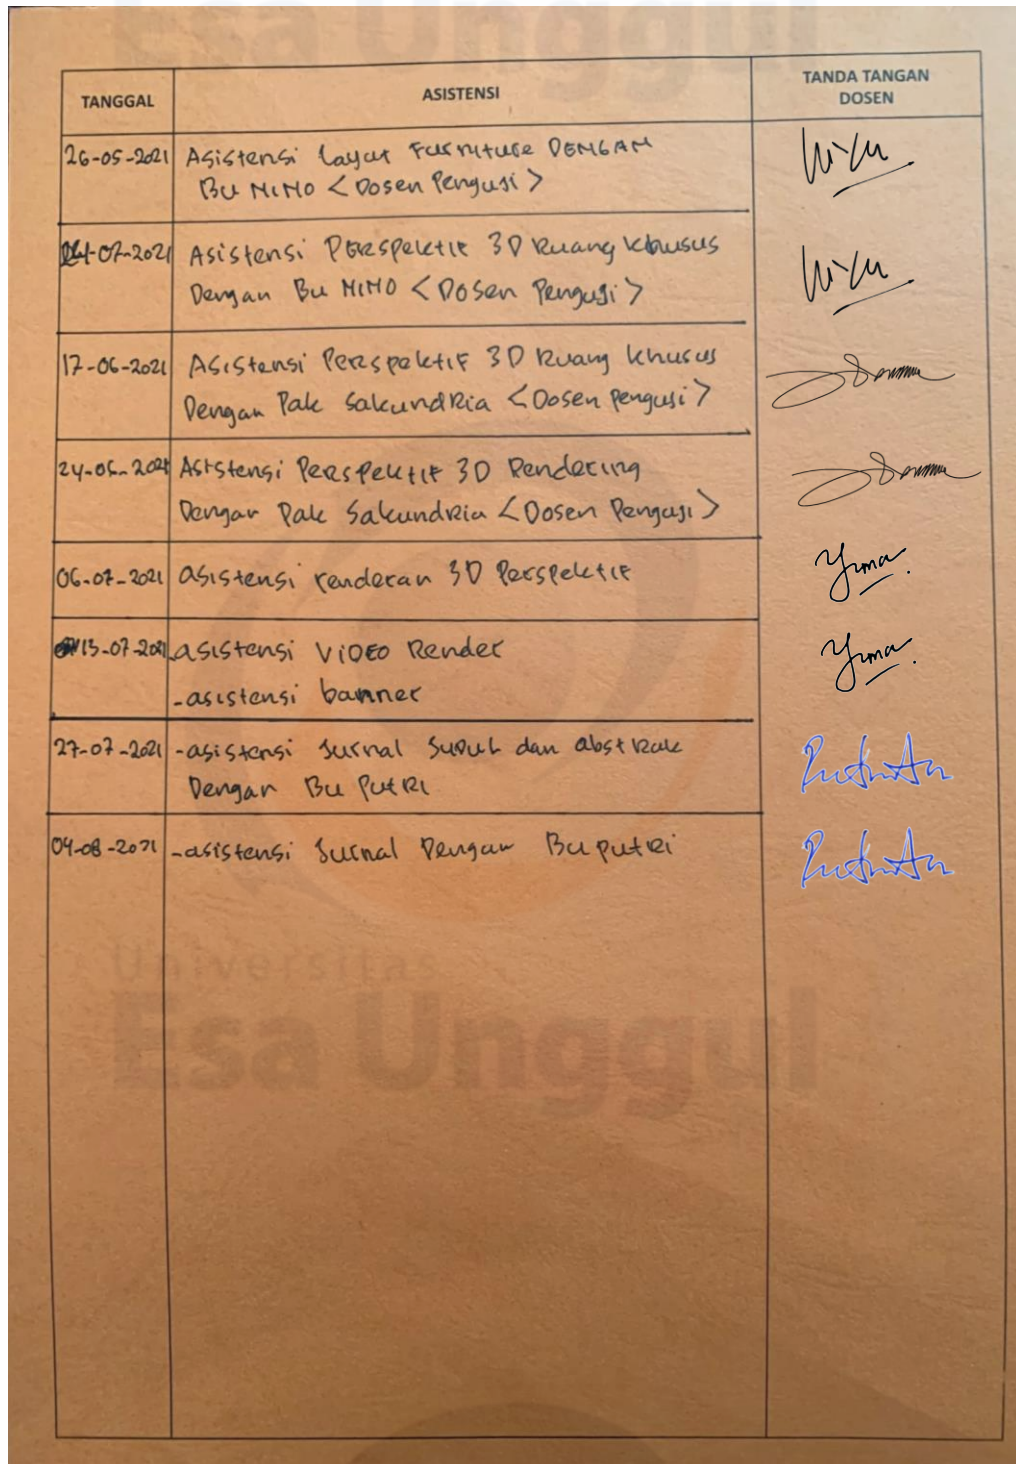 Esa Unggul
TANGGAL
ASISTENSI
TANDA TANGAN
DOSEN
26-05-2021 Asistensi Layut Furniture DENGAN
Bu MIMO <Dosen Penguji>
-07-2021 Asistensi PERSpektif 3D Ruang Khusus
Dengan Bu MIMO <DOSen Penguji>
17-06-2021 Asistensi Perspektif 3D Ruang Khusus
Dengan Pak SakundRia <Dosen penguji>
24-06-2021 Asistensi Perspektif 3D Rendering
Dengan Pak SakundRia <Dosen Penguji>
06-07-2021 asistensi renderan 3D Perspektif
13-07-2021 -asistensi ViDEO Render
-asistensi banner
27-07-2021 -asistensi Jurnal Judul dan abstRak
Dengan Bu PutRi
04-08-2021 -asistensi Jurnal Dengan Bu putRi
Universitas
Esa Unggul